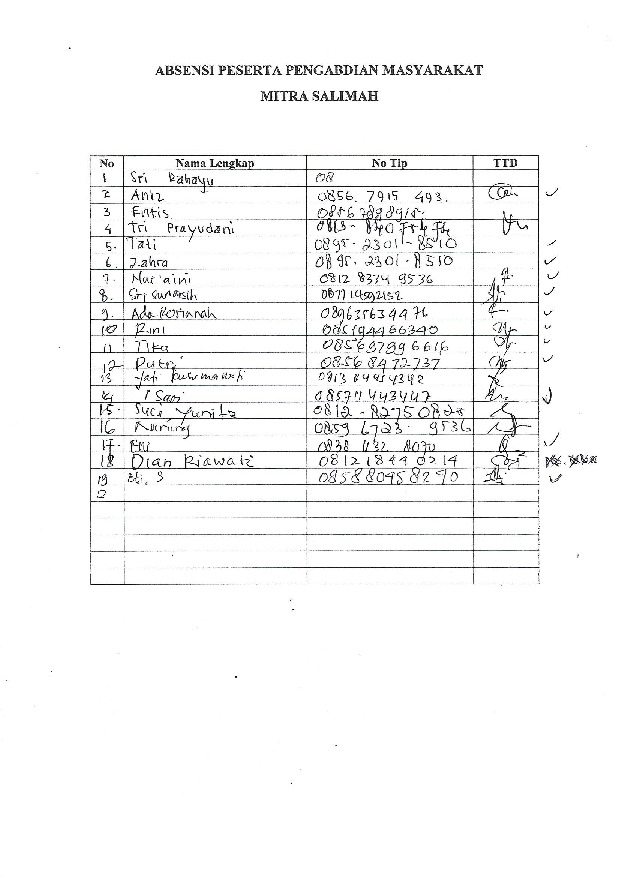 ABSENSI PESERTA PENGABDIAN MASYARAKAT
MITRA SALIMAH
No Nama Lengkap No Tlp TTD
1 Sri Rahayu 08
2 Aniz 0856. 7915 493.
3 Entis 08567888915.
4 Tri Prayudani 0813-
5. Tati 0895-2301-8510
6. Zahra 0895-2301-8510
7. Nur'aini 0812 8374 9536
8. Sri Sunarsih
9. Ada Rohanah 089635634476
10 Rini 085194466340
11 Tika 085697996616
12 Putri 08568472737
13 kusumawati
14 085711443447
15. Suci Yunita 0812-
16 Nuning 0859 6723. 9536
17.
18 Dian Riawati 081218440214
19 085880958290